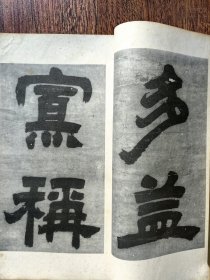 多益
寡稱